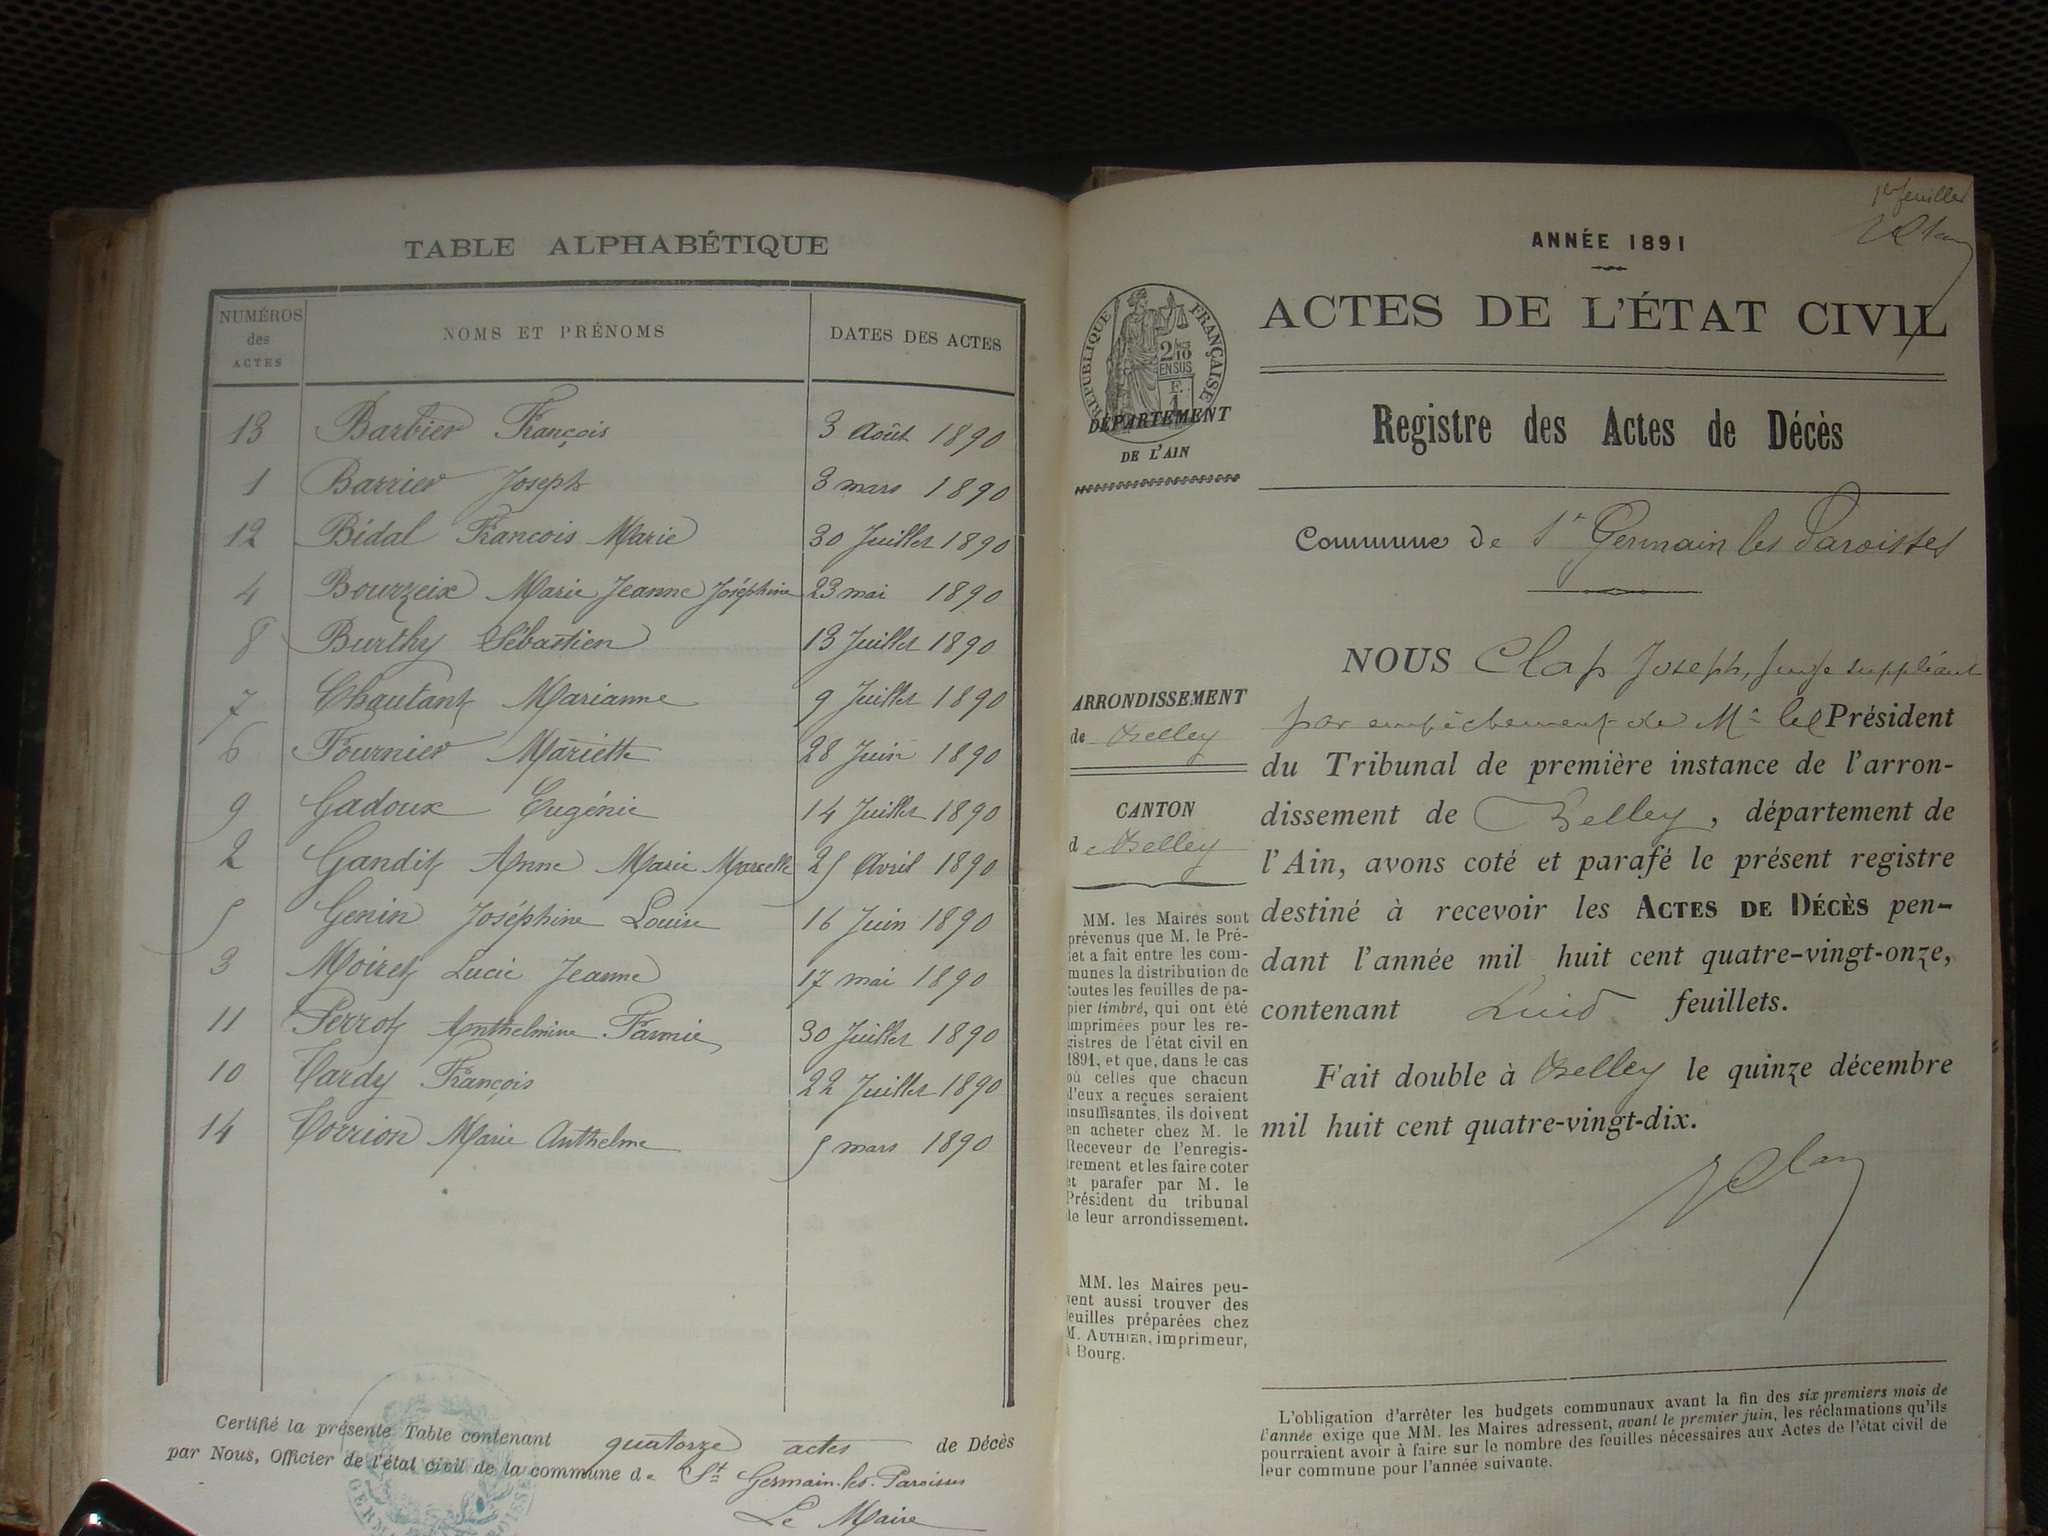 TABLE ALPHABÉTIQUE
NUMÉROS des ACTES NOMS ET PRÉNOMS DATES DES ACTES
13 Barbier François 3 Août 1890
1 Barrier Joseph 3 mars 1890
12 Bidal François Marie 30 Juillet 1890
4 Bourzeix Marie Jeanne Joséphine 23 mai 1890
8 Burthy Sébastien 13 Juillet 1890
7 Chautant Marianne 9 Juillet 1890
6 Fournier Mariette 28 Juin 1890
9 Gadoux Eugénie 14 Juillet 1890
2 Gandit Anne Marie Marcelle 25 Avril 1890
5 Genin Joséphine Louise 16 Juin 1890
3 Moiret Lucie Jeanne 17 mai 1890
11 Perrot Anthelmine 30 Juillet 1890
10 Tardy François 22 Juillet 1890
14 Torrion Marie Anthelme 5 mars 1890
Certifié la présente Table contenant quatorze actes de Décès
par Nous, Officier de l'état civil de la commune de St Germain-les-Paroisses
Le Maire
1er feuillet
ANNÉE 1891
ACTES DE L'ÉTAT CIVIL
RÉPUBLIQUE FRANÇAISE
2/10 EN SUS
DÉPARTEMENT
DE L'AIN
Registre des Actes de Décès
Commune de St Germain les Paroisses
ARRONDISSEMENT
de Belley
CANTON
d e Belley
NOUS Clap Joseph, juge suppléant
par empêchement de Mr le Président
du Tribunal de première instance de l'arron-
dissement de Belley, département de
l'Ain, avons coté et parafé le présent registre
destiné à recevoir les ACTES DE DÉCÈS pen-
dant l'année mil huit cent quatre-vingt-onze,
contenant huit feuillets.
Fait double à Belley le quinze décembre
mil huit cent quatre-vingt-dix.
MM. les Maires sont
prévenus que M. le Pré-
fet a fait entre les com-
munes la distribution de
toutes les feuilles de pa-
pier timbré, qui ont été
imprimées pour les re-
gistres de l'état civil en
1891, et que, dans le cas
où celles que chacun
d'eux a reçues seraient
insuffisantes, ils doivent
en acheter chez M. le
Receveur de l'enregis-
trement et les faire coter
et parafer par M. le
Président du tribunal
de leur arrondissement.
MM. les Maires peu-
vent aussi trouver des
feuilles préparées chez
M. AUTHIER, imprimeur,
à Bourg.
L'obligation d'arrêter les budgets communaux avant la fin des six premiers mois de
l'année exige que MM. les Maires adressent, avant le premier juin, les réclamations qu'ils
pourraient avoir à faire sur le nombre des feuilles nécessaires aux Actes de l'état civil de
leur commune pour l'année suivante.